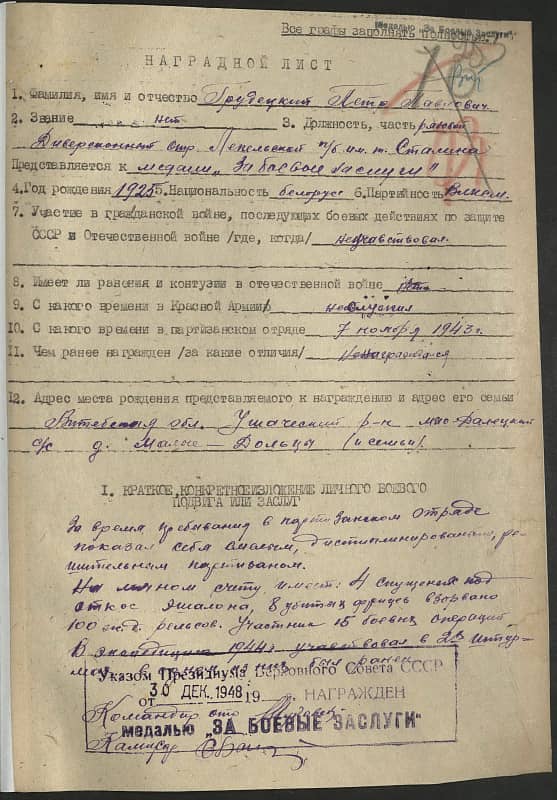 Медалью "За Боевые Заслуги"
Все графы заполнять полностью.
НАГРАДНОЙ ЛИСТ
1. Фамилия, имя и отчество Грудецкий Петр Павлович.
2. Звание нет 3. Должность, часть
Диверсионный отр. Лепельской п/б им. т. Сталина
Представляется к медали „За боевые заслуги"
4. Год рождения 1925 5. Национальность белорус 6. Партийность В.лксм.
7. Участие в гражданской войне, последующих боевых действиях по защите
СССР и Отечественной войне /где, когда/ не участвовал.
8. Имеет ли ранения и контузии в отечественной войне
9. С какого времени в Красной Армии не служил
10. С какого времени в партизанском отряде 7 ноября 1943 г.
11. Чем ранее награжден /за какие отличия/ не награждался
12. Адрес места рождения представляемого к награждению и адрес его семьи
Витебская обл. Ушачский р-н
с/с д. Малые – Дольцы (и семьи).
I. КРАТКОЕ, КОНКРЕТНОЕ ИЗЛОЖЕНИЕ ЛИЧНОГО БОЕВОГО
ПОДВИГА ИЛИ ЗАСЛУГ
За время пребывания в партизанском отряде
показал себя смелым, дисциплинированным, ре-
шительным партизаном.
На личном счету имеет: 4 спущенных под
откос эшалона, 8 убитых фрицев взорвано
100 рельсов. Участник 15 боевых операций
В экспедицию 1944 г. участвовал в 23 штур-
мах в одном из них был ранен.
Указом Президиума Верховного Совета СССР
от 30 ДЕК. 1948 19 г. НАГРАЖДЕН
Командир отр.
медалью „ЗА БОЕВЫЕ ЗАСЛУГИ"
Комиссар